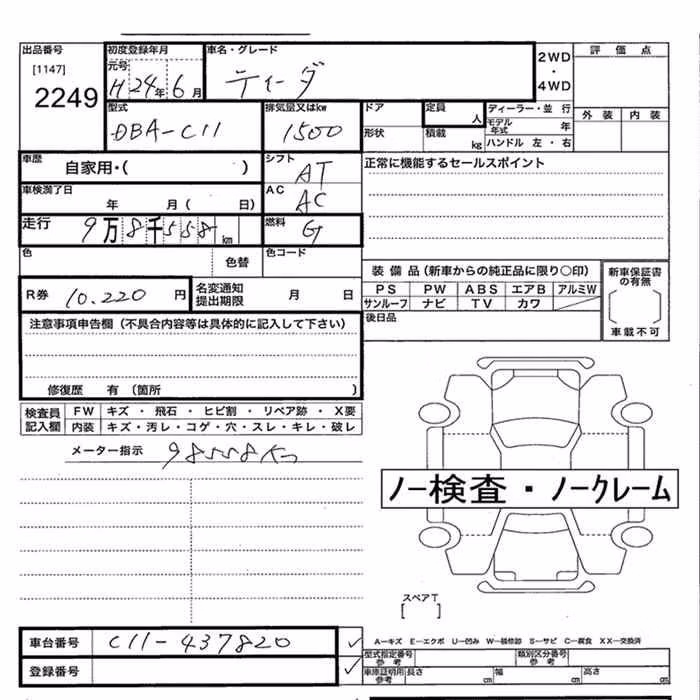 出品番号
[1147]
2249
初度登録年月
元号
H24年6月
車名・グレード
ティーダ
2WD
・
4WD
評価点
外装 内装
型式
DBA-C11
排気量又はkw
1500
ドア
形状
定員
人
積載
kg
ディーラー・並行
モデル年式 年
ハンドル 左・右
車歴
自家用・( )
シフト
AT
正常に機能するセールスポイント
車検満了日
年 月( 日)
AC
AC
走行
9万8千558km
燃料
G
色
色替
色コード
装備品(新車からの純正品に限り○印)
PS PW ABS エアB アルミW
サンルーフ ナビ TV カワ
新車保証書の有無
車載不可
R券 10.220円
名変通知
提出期限
月 日
後日品
注意事項申告欄(不具合内容等は具体的に記入して下さい)
修復歴 有(箇所 )
検査員
記入欄
FW キズ・飛石・ヒビ割・リペア跡・X要
内装 キズ・汚レ・コゲ・穴・スレ・キレ・破レ
メーター指示 98558Km
ノー検査・ノークレーム
スペアT
[ ]
車台番号 C11-437820 ✓
A―キズ E―エクボ U―凹み W―補修跡 S―サビ C―腐食 XX―交換済
型式指定番号
参考
類別区分番号
参考
登録番号 ✓
車庫証明用
参考
長さ cm 幅 cm 高さ cm